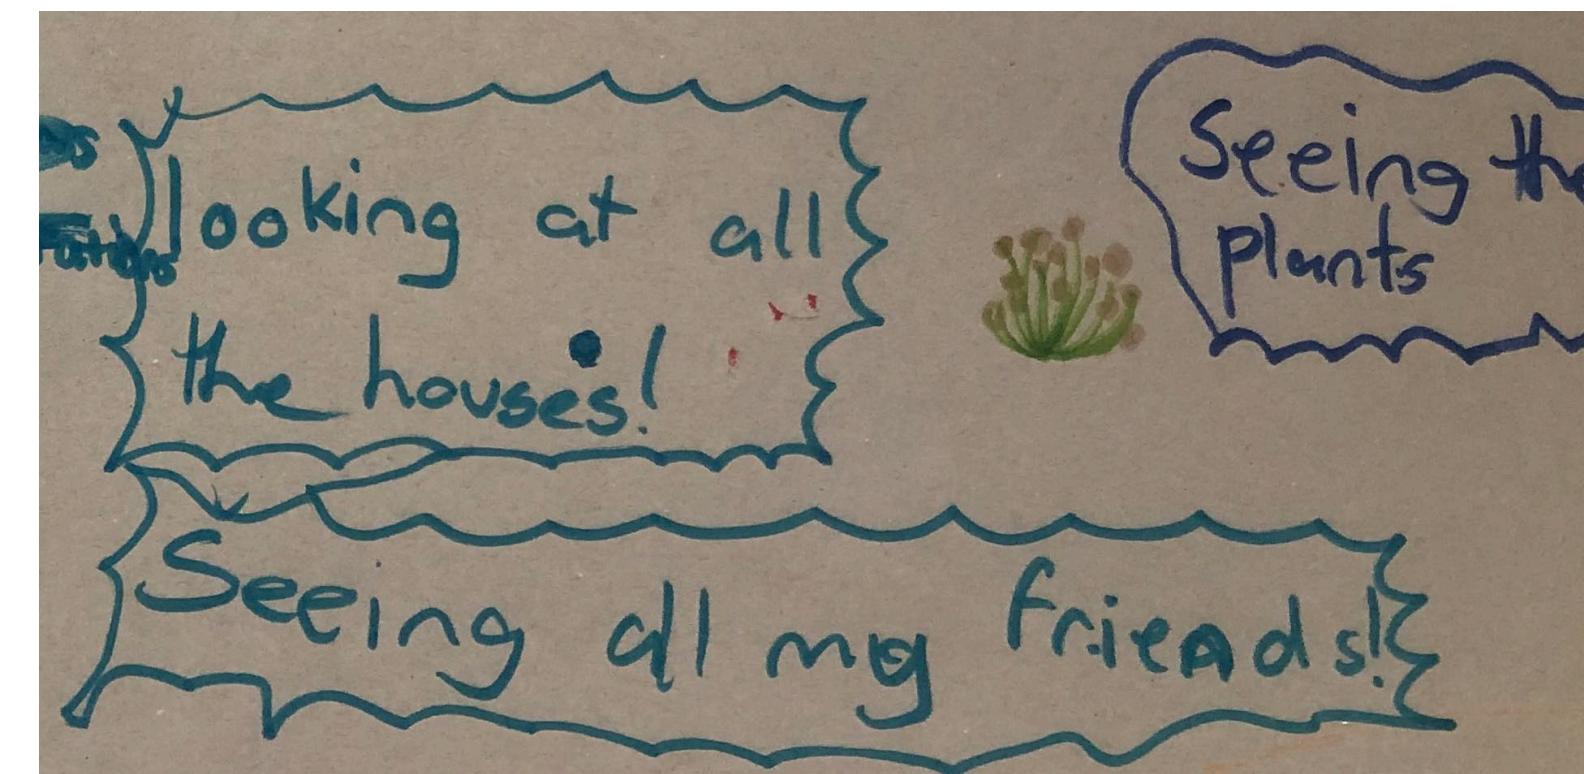 looking at all
the houses!
Seeing the
plants
Seeing all my friends!